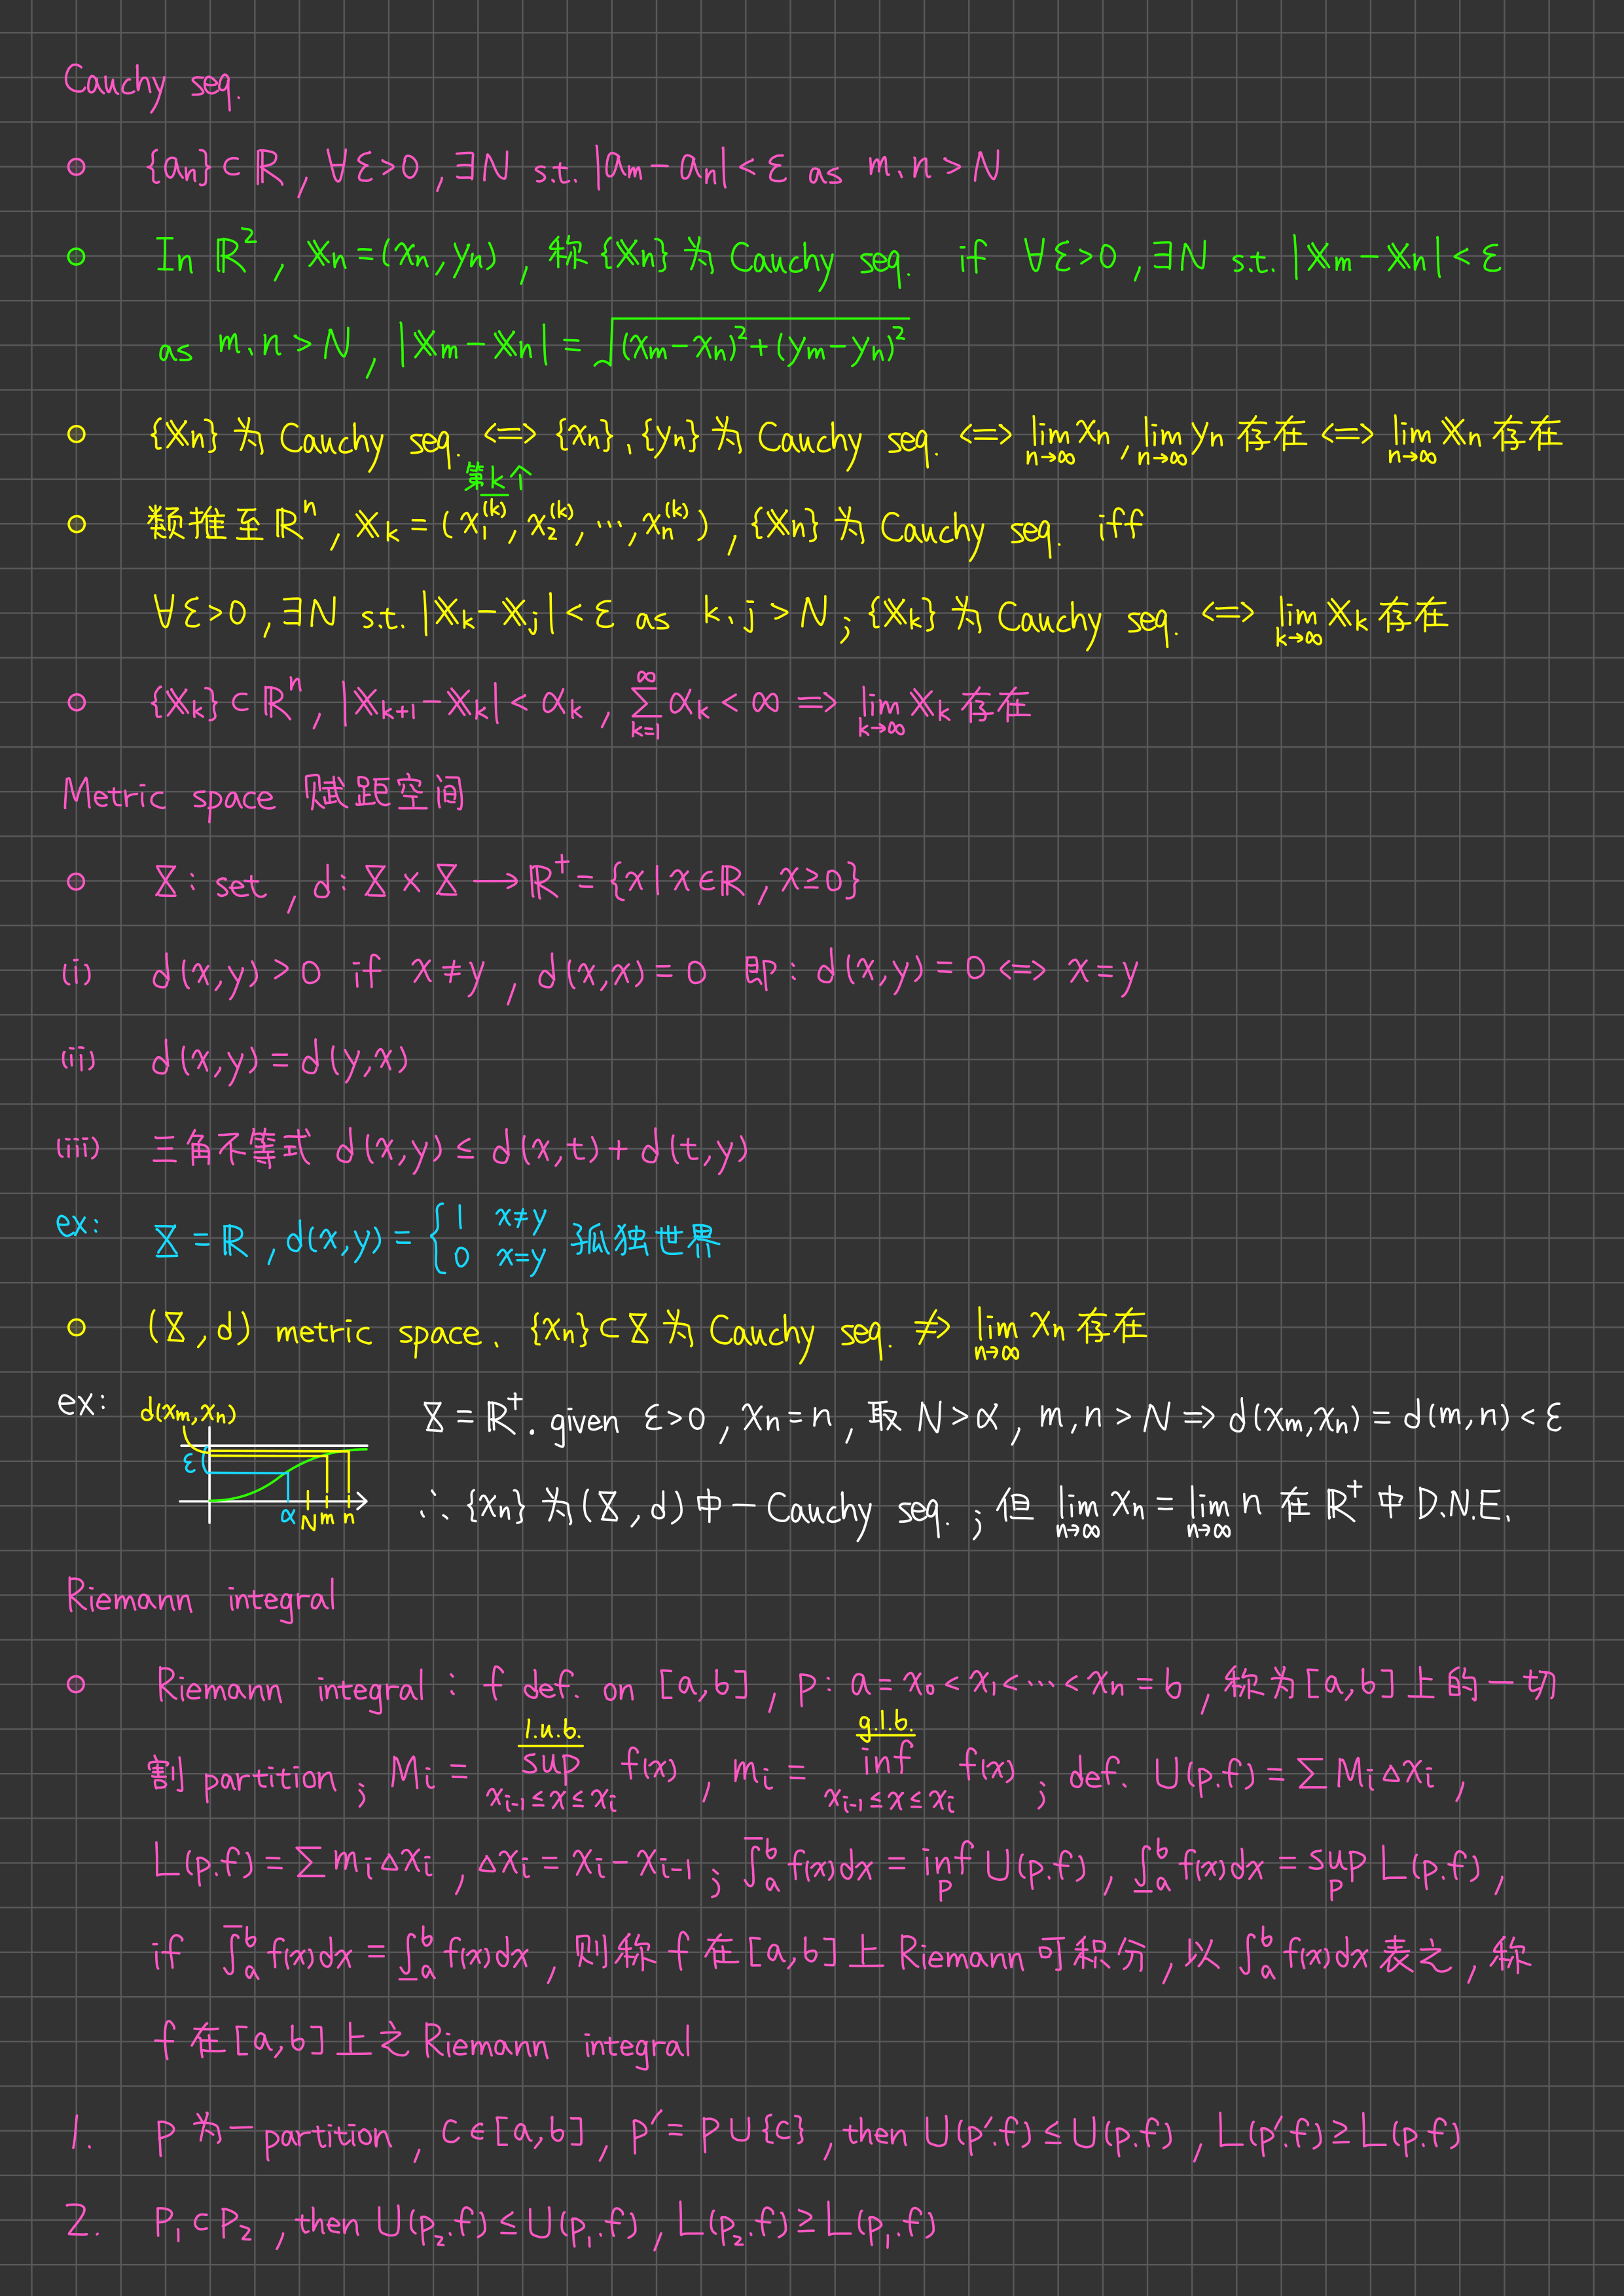 Cauchy seq.
○ {aₙ}⊂ℝ, ∀ε>0, ∃N s.t. |aₘ-aₙ|<ε as m、n>N
○ In ℝ², 𝕏ₙ=(xₙ,yₙ), 称{𝕏ₙ}为 Cauchy seq. if ∀ε>0, ∃N s.t. |𝕏ₘ-𝕏ₙ|<ε
as m、n>N, |𝕏ₘ-𝕏ₙ|=√((xₘ-xₙ)²+(yₘ-yₙ)²)
○ {𝕏ₙ}为 Cauchy seq. <=> {xₙ}、{yₙ}为 Cauchy seq. <=> lim_{n→∞} xₙ, lim_{n→∞} yₙ 存在 <=> lim_{n→∞} 𝕏ₙ 存在
第k个
○ 类推至ℝⁿ, 𝕏ₖ=(x₁^{(k)}, x₂^{(k)}, ⋯, xₙ^{(k)}), {𝕏ₙ}为 Cauchy seq. iff
∀ε>0, ∃N s.t. |𝕏ₖ-𝕏ⱼ|<ε as k、j>N; {𝕏ₖ}为 Cauchy seq. <=> lim_{k→∞} 𝕏ₖ 存在
○ {𝕏ₖ}⊂ℝⁿ, |𝕏ₖ₊₁-𝕏ₖ|<αₖ, ∑_{k=1}^{∞} αₖ<∞ => lim_{k→∞} 𝕏ₖ 存在
Metric space 赋距空间
○ X: set, d: X×X→ℝ⁺={x|x∈ℝ, x≥0}
(i) d(x,y)>0 if x≠y, d(x,x)=0 即: d(x,y)=0 <=> x=y
(ii) d(x,y)=d(y,x)
(iii) 三角不等式 d(x,y)≤d(x,t)+d(t,y)
ex: X=ℝ, d(x,y)={1 x≠y
0 x=y 孤独世界
○ (X,d) metric space、{xₙ}⊂X 为 Cauchy seq. ≠> lim_{n→∞} xₙ 存在
ex: d(xₘ,xₙ) X=ℝ⁺. given ε>0, xₙ=n, 取 N>α, m,n>N => d(xₘ,xₙ)=d(m,n)<ε
ε
α N m n ∴{xₙ}为(X,d)中一 Cauchy seq.; 但 lim_{n→∞} xₙ=lim_{n→∞} n 在ℝ⁺中 D.N.E.
Riemann integral
○ Riemann integral: f def. on [a,b], p: a=x₀<x₁<⋯<xₙ=b, 称为[a,b]上的一切
l.u.b. g.l.b.
割 partition; Mᵢ=sup_{xᵢ₋₁≤x≤xᵢ} f(x), mᵢ=inf_{xᵢ₋₁≤x≤xᵢ} f(x); def. U(p.f)=∑Mᵢ△xᵢ,
L(p.f)=∑mᵢ△xᵢ, △xᵢ=xᵢ-xᵢ₋₁; ∫̅ₐᵇ f(x)dx=inf_p U(p.f), ∫̲ₐᵇ f(x)dx=sup_p L(p.f),
if ∫̅ₐᵇ f(x)dx=∫̲ₐᵇ f(x)dx, 则称 f 在[a,b]上 Riemann 可积分, 以 ∫ₐᵇ f(x)dx 表之, 称
f 在[a,b]上之 Riemann integral
1. P 为一 partition, c∈[a,b], p′=p∪{c}, then U(p′.f)≤U(p.f), L(p′.f)≥L(p.f)
2. P₁⊂P₂, then U(p₂.f)≤U(p₁.f), L(p₂.f)≥L(p₁.f)